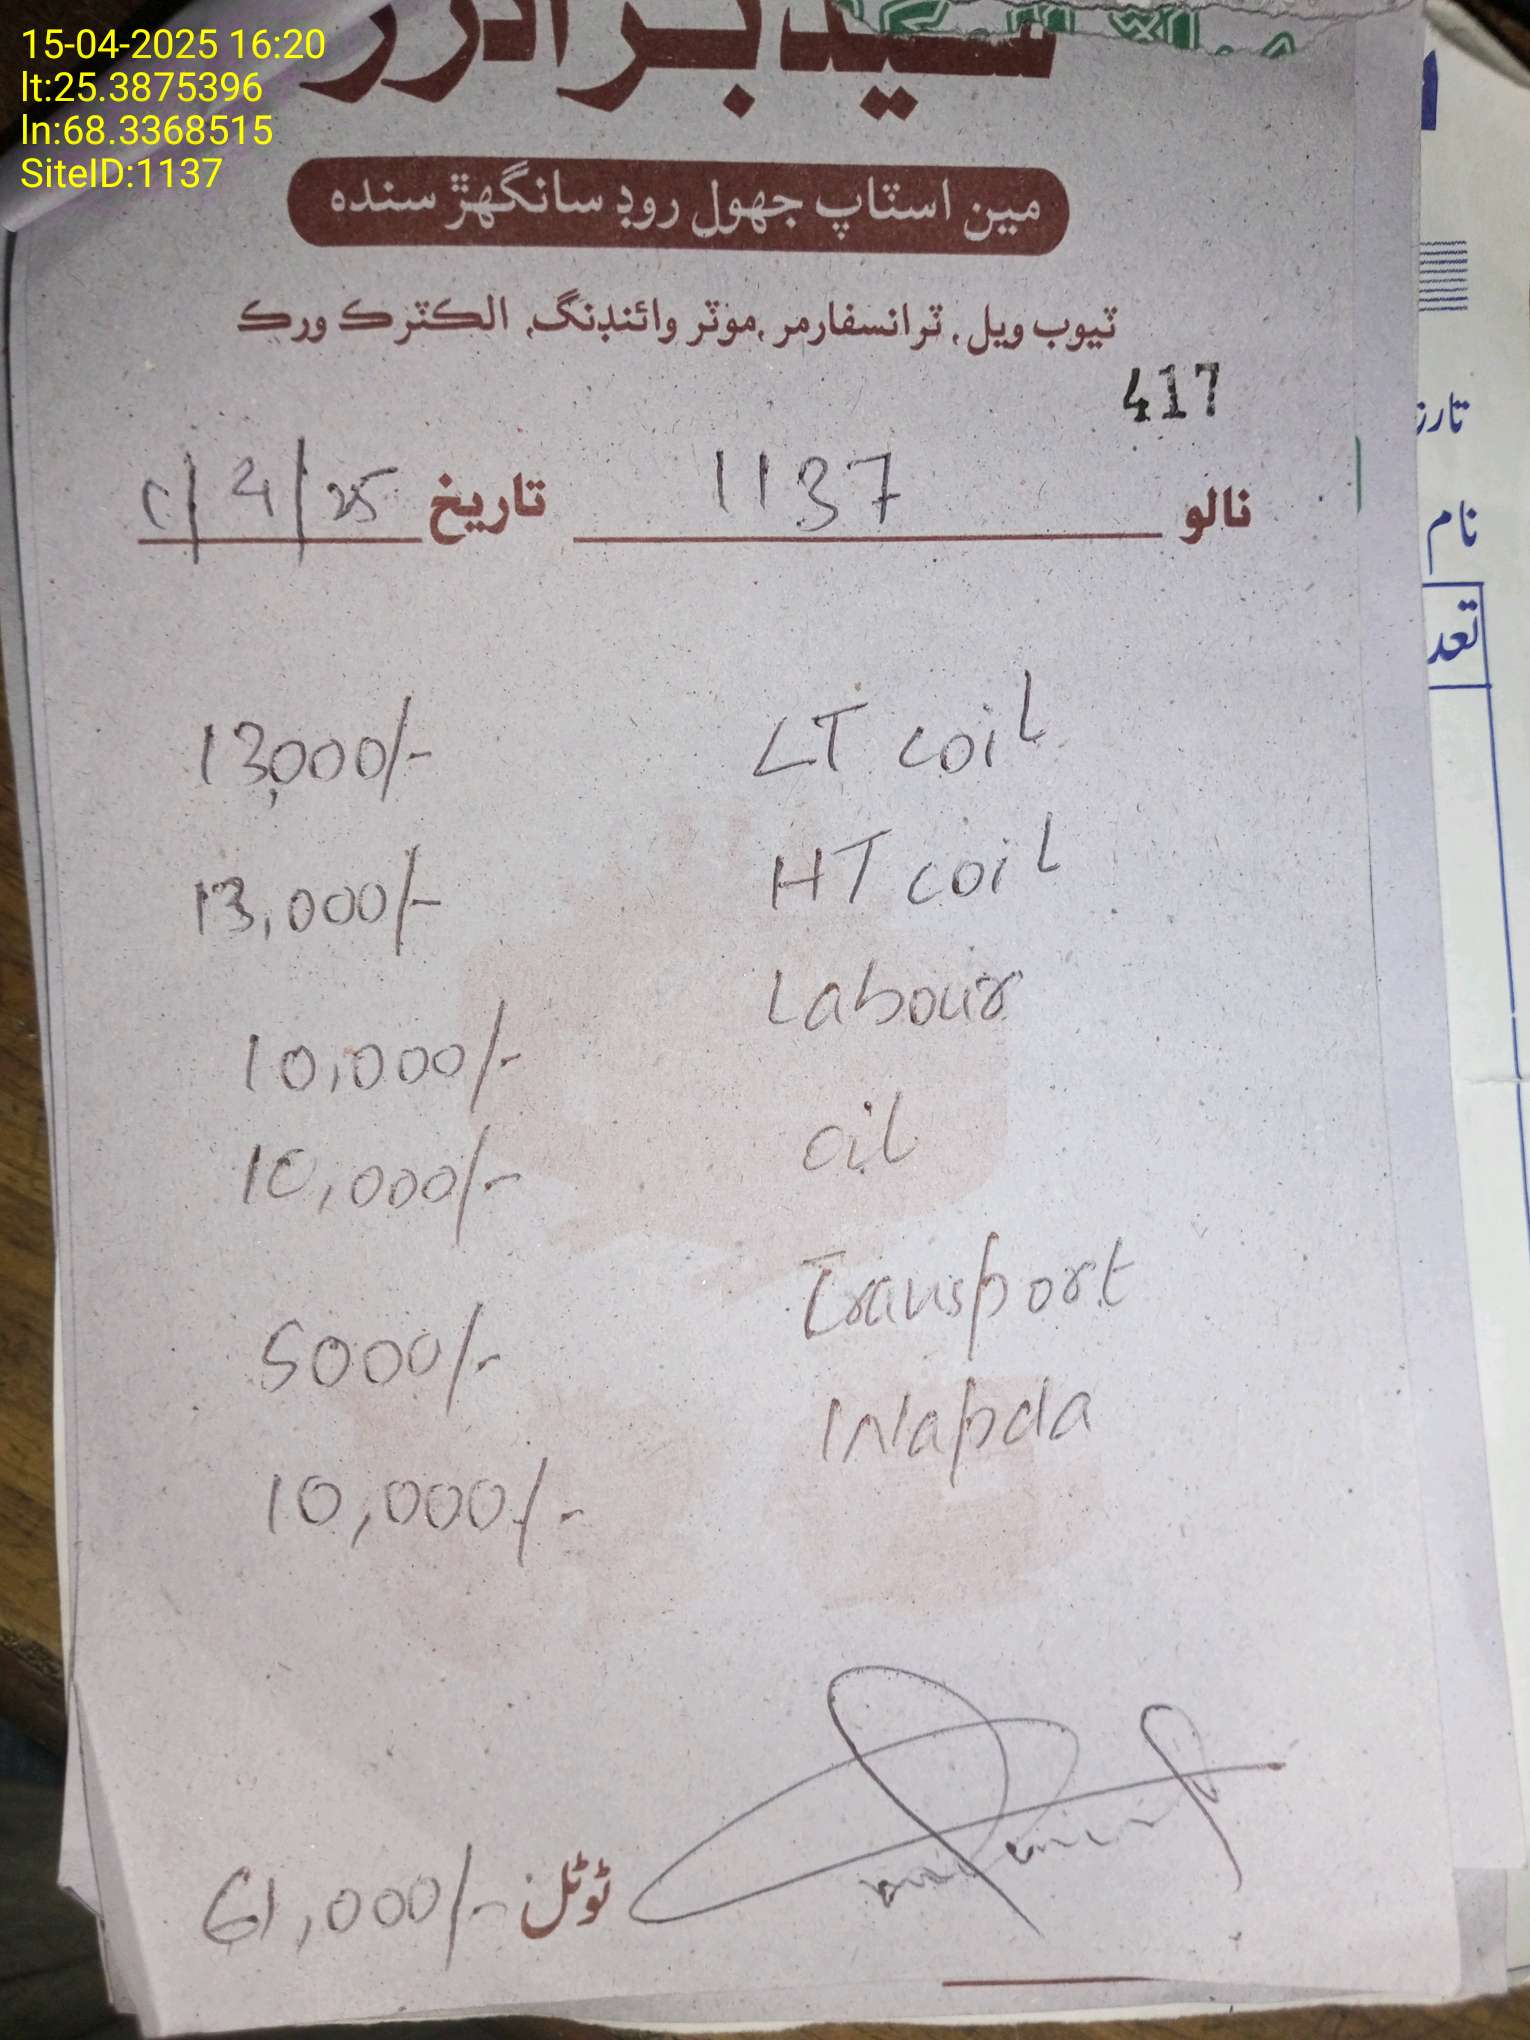 15-04-2025 16:20
lt:25.3875396
ln:68.3368515
SiteID:1137
سيد برادرز
مين اسٽاپ جھول روڊ سانگھڙ سنڌ
ٽيوب ويل, ٽرانسفارمر, موٽر وائنڊنگ, الڪٽرڪ ورڪ
417
نالو 1137 تاريخ 2/4/25
LT coil 13,000/-
HT coil 13,000/-
Labour 10,000/-
oil 10,000/-
Transport 5000/-
Wapda 10,000/-
ٽوٽل 61,000/-
تاريخ
نام
تعد